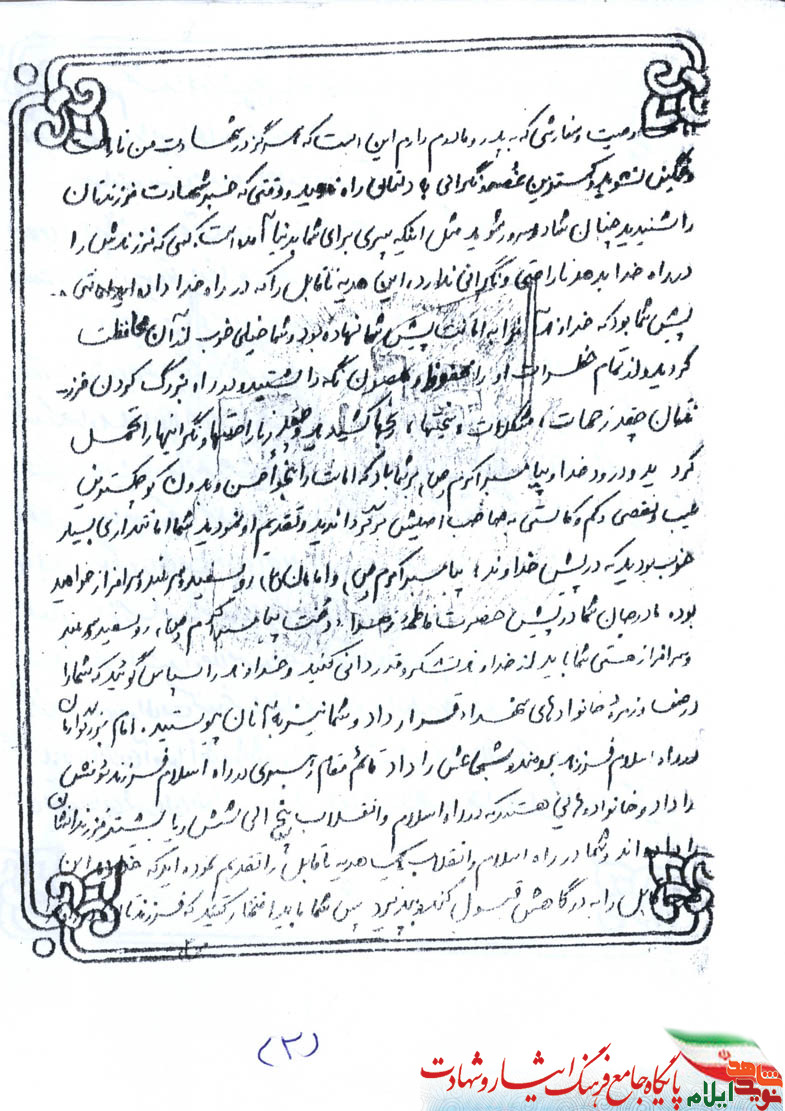 وصیت و سفارشی که به پدر و مادرم دارم این است که هرگز در شهادت من ناراحت
و غمگین نشوید و کمترین غصه و نگرانی به دلتان راه ندهید و وقتی که خبر شهادت فرزندتان
را شنیدید چنان شاد و مسرور شوید مثل اینکه پسری برای شما بدنیا آمده است کسی که فرزندش را
در راه خدا بدهد ناراحتی و نگرانی ندارد، این هدیه ناقابل را که در راه خدا داده اید امانتی
پیش شما بود که خداوند آنرا به امانت پیش شما نهاده بود و شما خیلی خوب از آن محافظت
کردید و از تمام خطرات او را محفوظ و مصون نگه داشتید و در راه بزرگ کردن فرزند
تان چقدر زحمات، مشکلات، رنجها کشیدید و چقدر ناراحتیها و نگرانیها را تحمل
کردید و درود خدا و پیامبر اکرم (ص) بر شما باد که امانت را بنحو احسن و بدون کوچکترین
عیب و نقصی و کم و کاستی به صاحب اصلیش برگرداندید و تقدیم او نمودید شما امانتداری بسیار
خوب بودید که در پیش خداوند، پیامبر اکرم (ص) و امامان (ع) روسفید و سربلند و سرافراز خواهید
بود مادر جان شما در پیش حضرت فاطمه زهرا دخت پیامبر اکرم (ص) روسفید و سربلند
و سرافراز هستی شما باید از خداوند تشکر و قدردانی کنید و خداوند را سپاس گوئید که شما را
در صف و زمره خانوادهای شهداء قرار داد و شما نیز به آنان پیوستید. امام بزرگوارمان
در راه اسلام فرزند برومند و شجاعش را داد قائم مقام رهبری در راه اسلام فرزند
را داد و خانوادهایی هستند که در راه اسلام و انقلاب پنج الی شش و یا بیشتر فرزندانشان
را داده اند و شما در راه اسلام و انقلاب یک هدیه ناقابل را تقدیم نموده اید که این
ناقابل را به درگاهش قبول کند و بپذیرد پس شما باید افتخار کنید که فرزندتان
(۳)
پایگاه جامع فرهنگ ایثار و شهادت
نوید شاهد ایلام